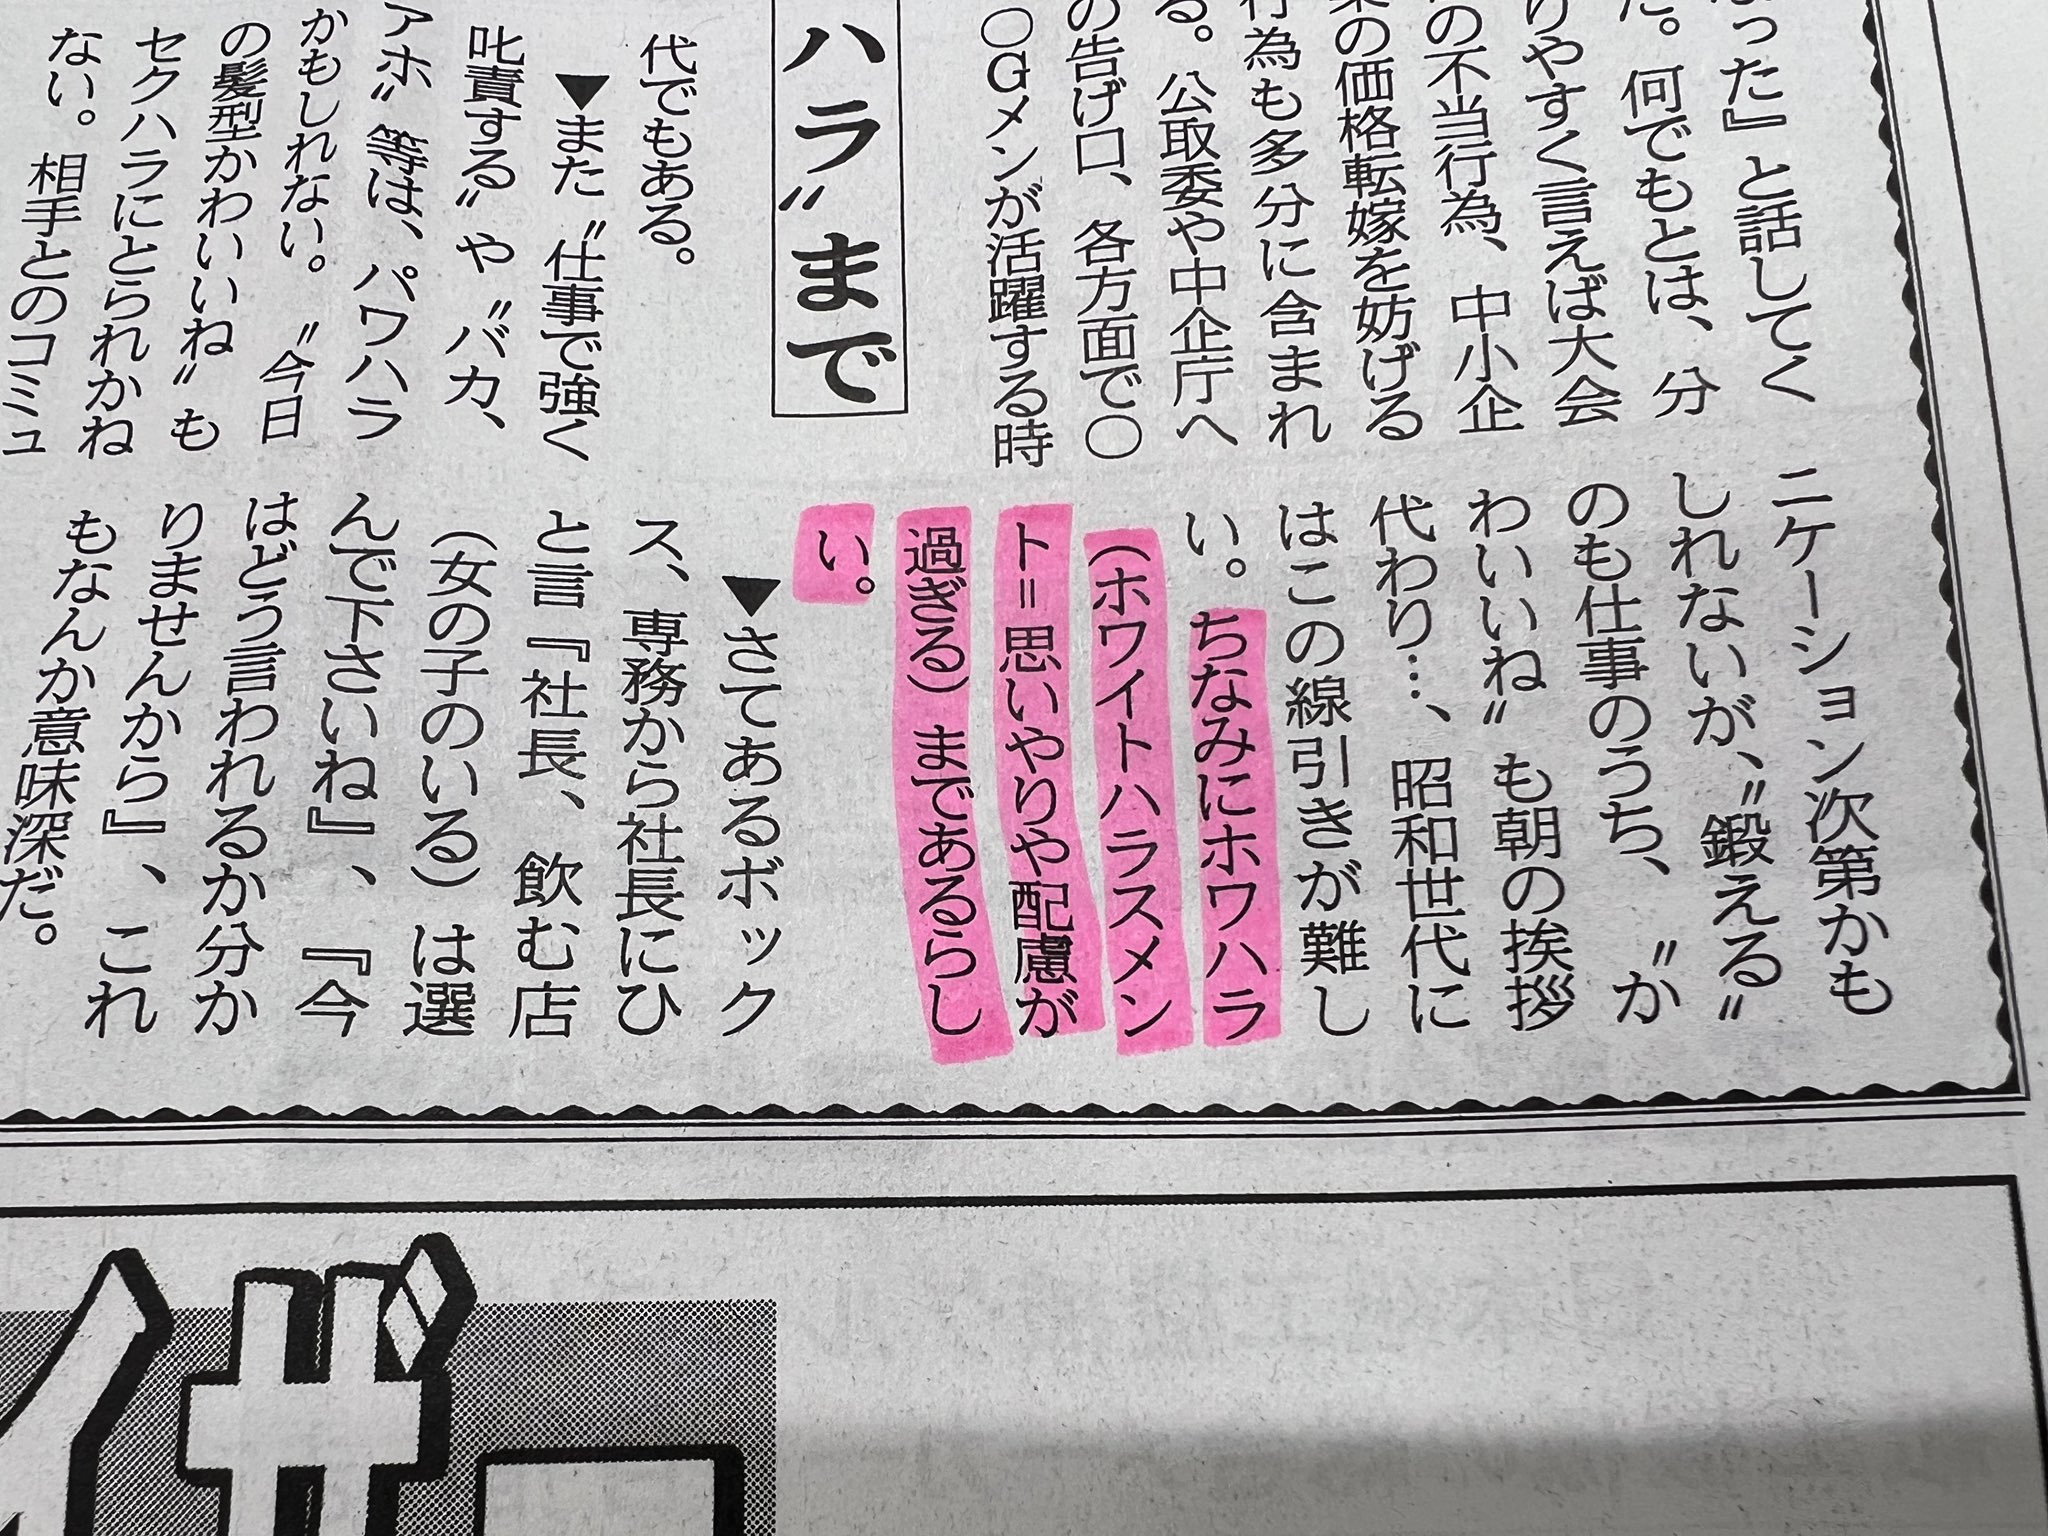 なった』と話してく
た。何でもとは、分
りやすく言えば大会
の不当行為、中小企
業の価格転嫁を妨げる
行為も多分に含まれ
る。公取委や中企庁へ
の告げ口、各方面で〇
〇Gメンが活躍する時
ハラ〟まで
代でもある。
▼また〝仕事で強く
叱責する〟や〝バカ、
アホ〟等は、パワハラ
かもしれない。〝今日
の髪型かわいいね〟も
セクハラにとられかね
ない。相手とのコミュ
ニケーション次第かも
しれないが、〝鍛える〟
のも仕事のうち、〝か
わいいね〟も朝の挨拶
代わり…、昭和世代に
はこの線引きが難し
い。ちなみにホワハラ
（ホワイトハラスメン
ト＝思いやりや配慮が
過ぎる）まであるらし
い。
▼さてあるボック
ス、専務から社長にひ
と言『社長、飲む店
（女の子のいる）は選
んで下さいね』、『今
はどう言われるか分か
りませんから』、これ
もなんか意味深だ。